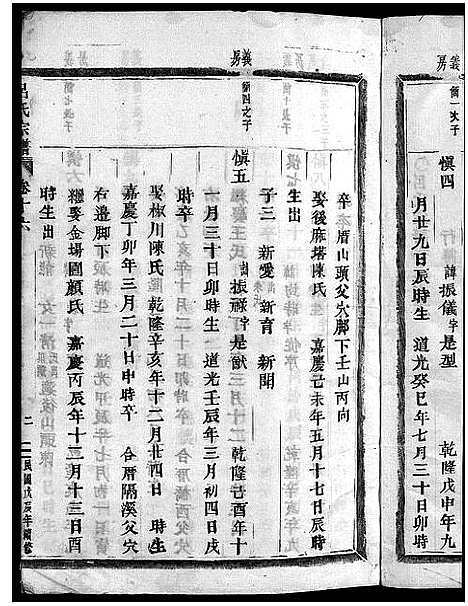 義房
簡一次子
慎四
諱振儀字是型 乾隆戊申年九
月廿九日辰時生 道光癸巳年七月三十日卯時
義房
簡四之子
卒 厝山頭父穴脚下壬山丙向
娶後麻塔陳氏 嘉慶己未年五月十七日辰時
生出
子三 新愛 新育 新開
慎五 諱振祿字是猷 乾隆己酉年十
一月三十日卯時生 道光壬辰年三月初四日戌
時卒
娶椒川陳氏 乾隆辛亥年十二月廿四日 時生
嘉慶丁卯年三月二十日申時卒 合厝隔溪父穴
右邊脚下
繼娶金場圓顏氏 嘉慶丙辰年十二月十三日酉
時生出
呂氏宗譜 卷
二
民國戊辰年續修